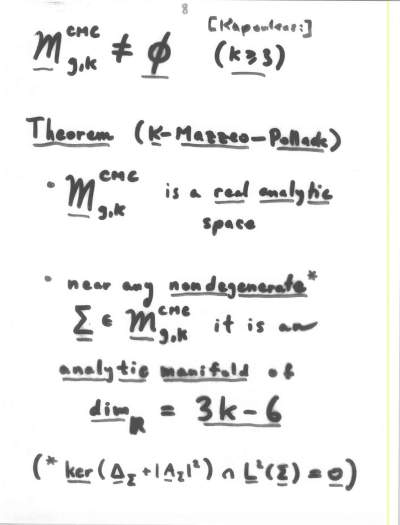 8
[Kapouleas:]
𝓜^CMC_g,k ≠ ϕ (k ≥ 3)
Theorem (K-Mazzeo-Pollack)
• 𝓜^CMC_g,k is a real analytic
space
• near any nondegenerate*
Σ ∈ 𝓜^CMC_g,k it is an
analytic manifold of
dim_ℝ = 3k-6
(* ker(Δ_Σ + |A_Σ|²) ∩ L²(Σ) = 0)